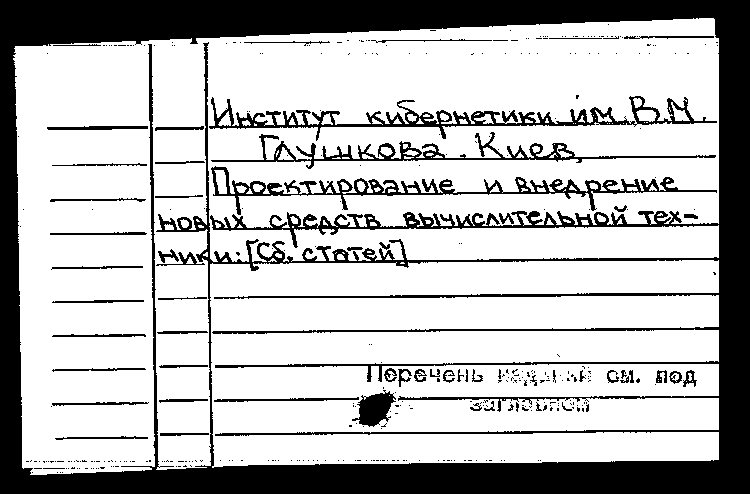 Институт кибернетики им. В.М.
Глушкова. Киев.
Проектирование и внедрение
новых средств вычислительной тех-
ники: [Сб. статей]
Перечень изданий см. под
заглавием